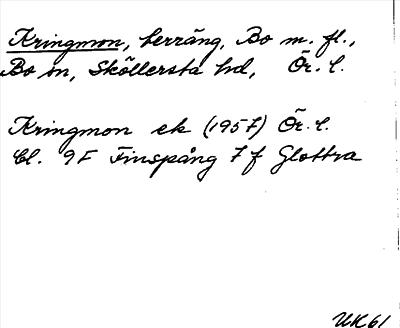 Kringmon, terräng, Bo m. fl.,
Bo sn, Sköllersta hd, Ör. l.
Kringmon ek (1957) Ör. l.
Bl. 9F Finspång 7f Glottra
UK 61